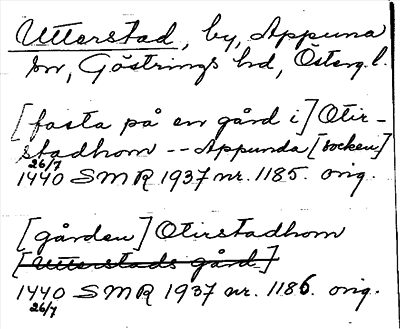 Utterstad, by, Appuna
sn, Göstrings hd, Österg. l.
[fasta på en gård i] Otir-
stadhom -- Appunda [socken]
26/7
1440 SMR 1937 nr. 1185. orig.
[gården] Otirstadhom
[Utterstads gård]
1440 SMR 1937 nr. 1186. orig.
26/7